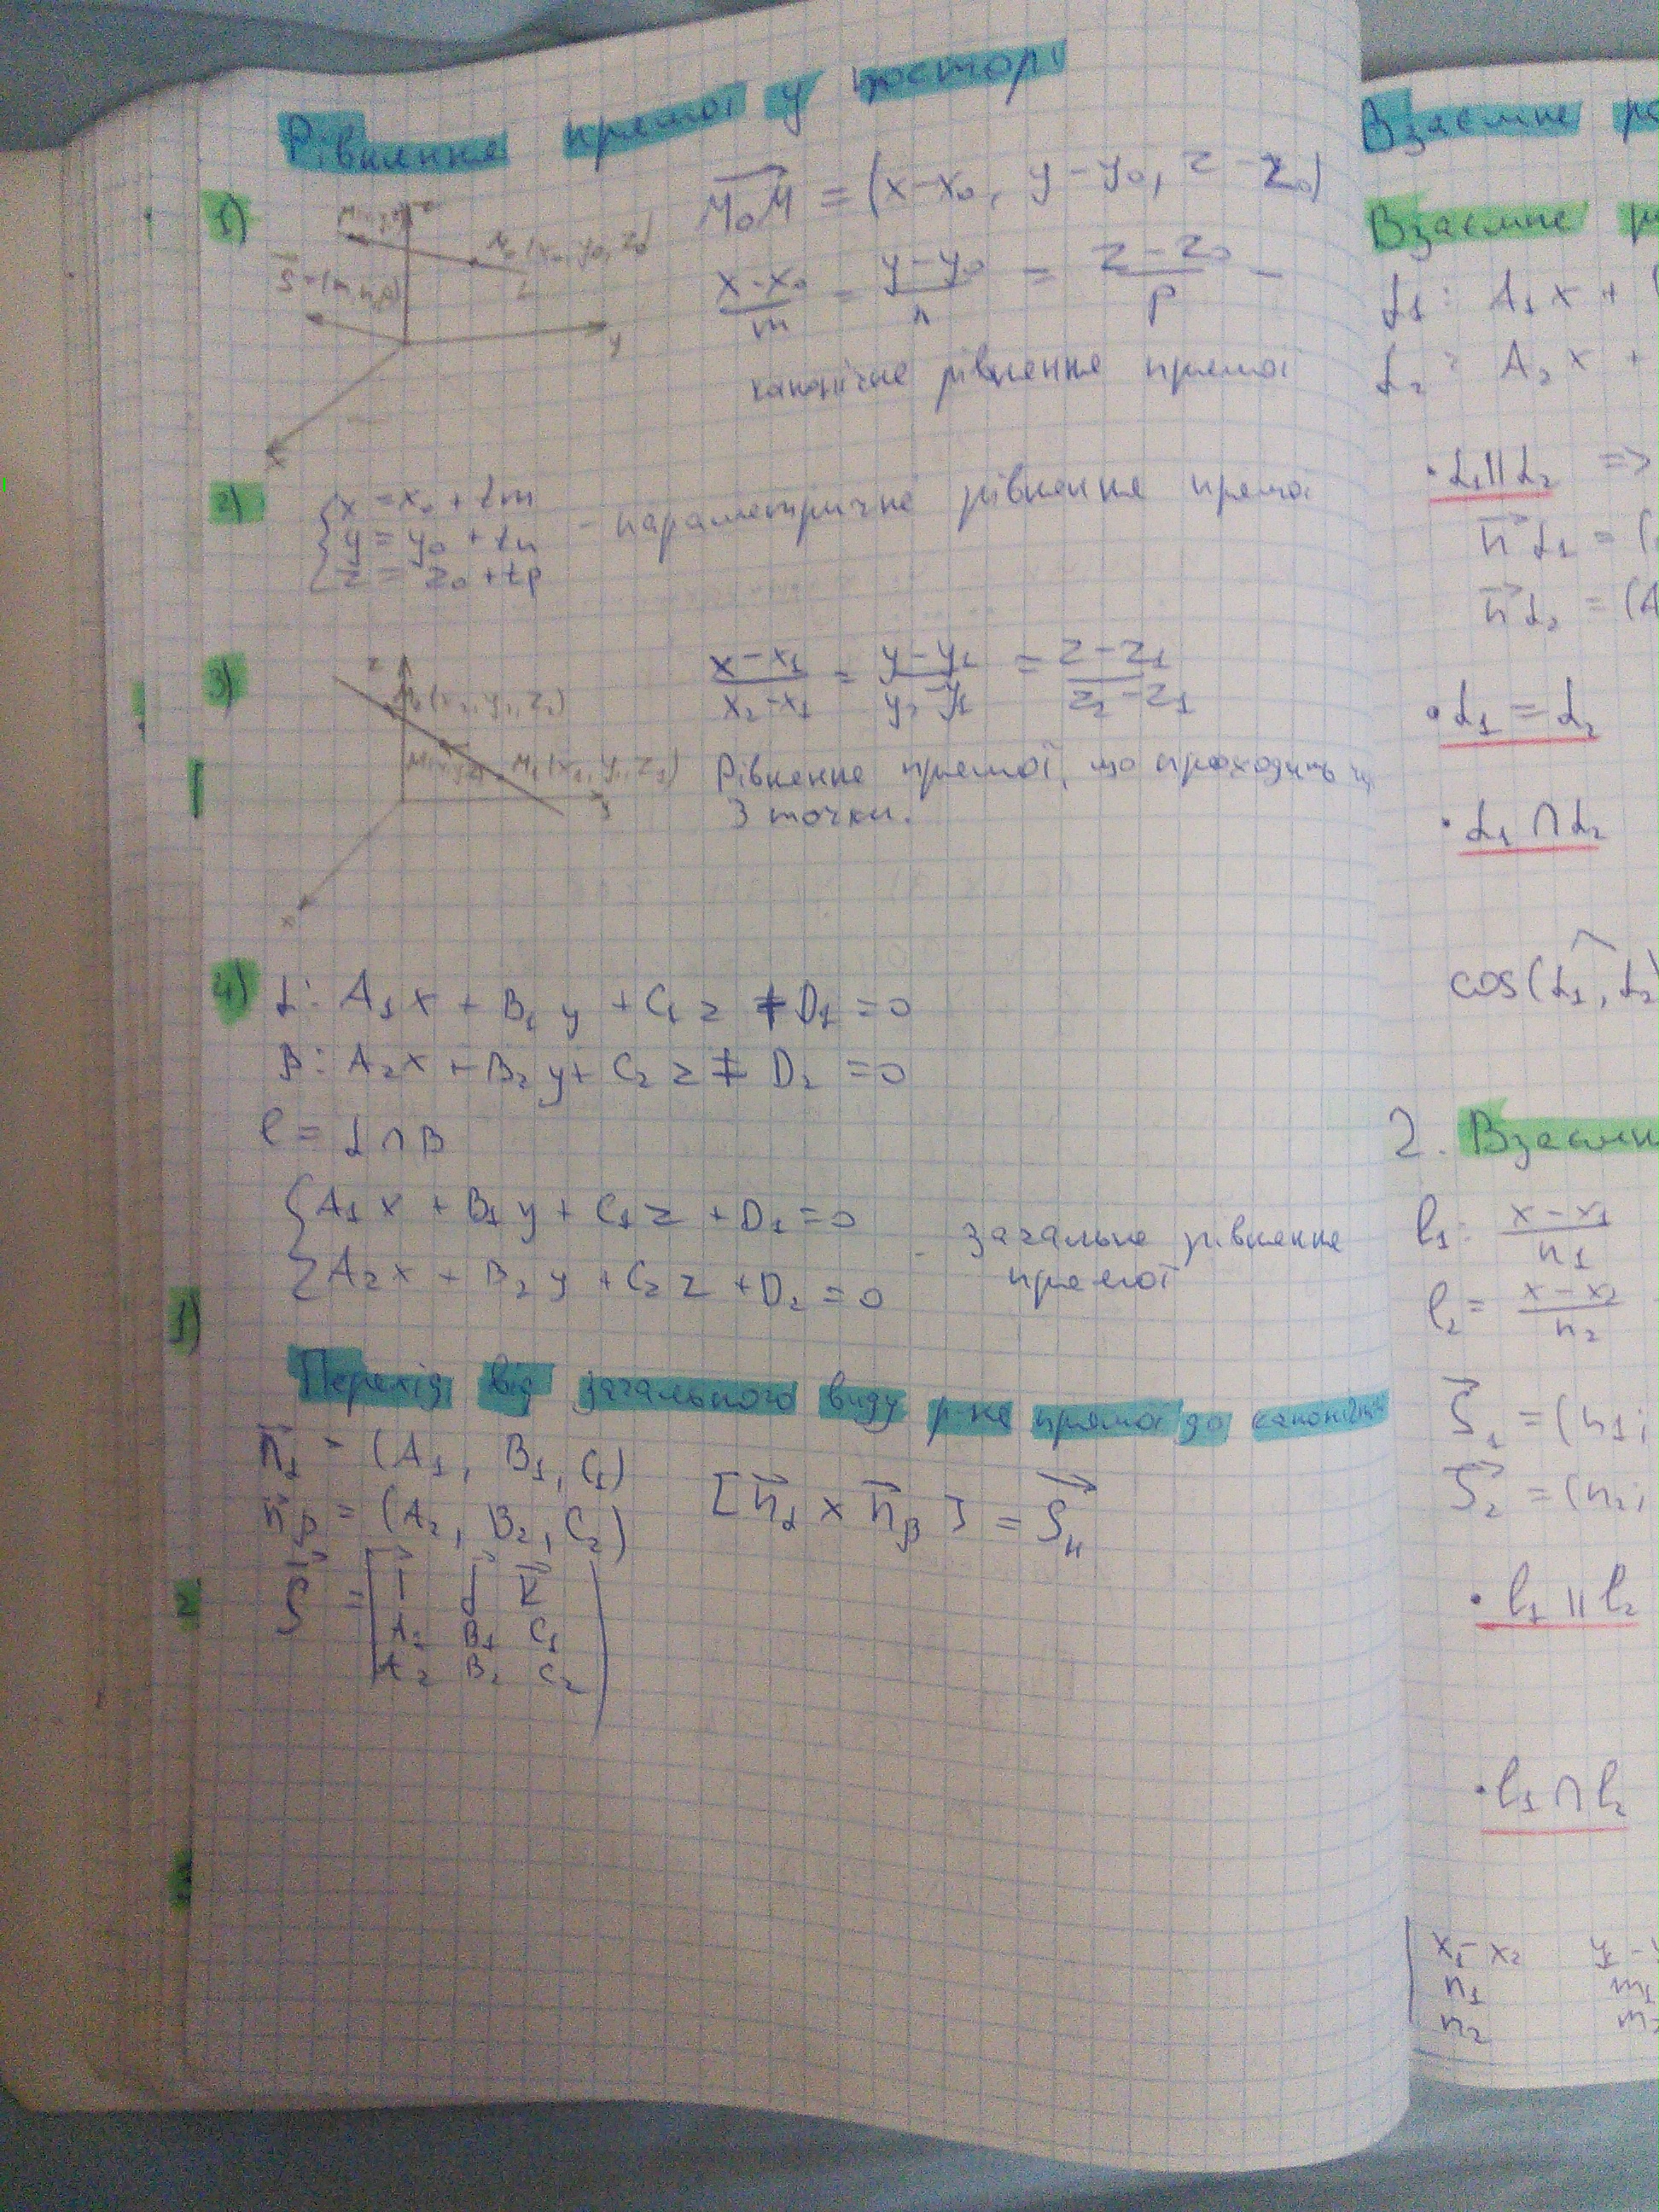 Рівняння прямої у просторі
1)
M₀M = (x-x₀, y-y₀, z-z₀)
M₀(x₀, y₀, z₀)
S=(m,n,p)
L
y
x
(x-x₀)/m = (y-y₀)/n = (z-z₀)/p -
канонічне рівняння прямої
2)
{x = x₀ + tm
y = y₀ + tn
z = z₀ + tp
- параметричне рівняння прямої
3)
z
M₁(x₁, y₁, z₁)
y
x
(x-x₁)/(x₂-x₁) = (y-y₁)/(y₂-y₁) = (z-z₁)/(z₂-z₁)
Рівняння прямої, що проходить
3 точки.
4) α: A₁x + B₁y + C₁z + D₁ = 0
β: A₂x + B₂y + C₂z + D₂ = 0
l = α ∩ β
{A₁x + B₁y + C₁z + D₁ = 0
A₂x + B₂y + C₂z + D₂ = 0
- загальне рівняння
прямої
1)
Перехід від загального виду р-ня прямої до
n₁ = (A₁, B₁, C₁)
nβ = (A₂, B₂, C₂)
[nα × nβ] = Sн
S = |i j k
A₁ B₁ C₁
A₂ B₂ C₂|
2
Взаємне
Взаємне
α₁: A₁x +
α₂: A₂x +
· α₁ || α₂ =>
nα₁ = (
nα₂ = (A
· α₁ = α₂
· α₁ ∩ α₂
cos(α₁, α₂)
2. Взаємн
l₁: (x-x₁)/n₁
l₂ = (x-x₂)/n₂
S₁ = (n₁;
S₂ = (n₂;
· l₁ || l₂
· l₁ ∩ l₂
|x₁-x₂ y₁-y
n₁ m₁
n₂ m₂